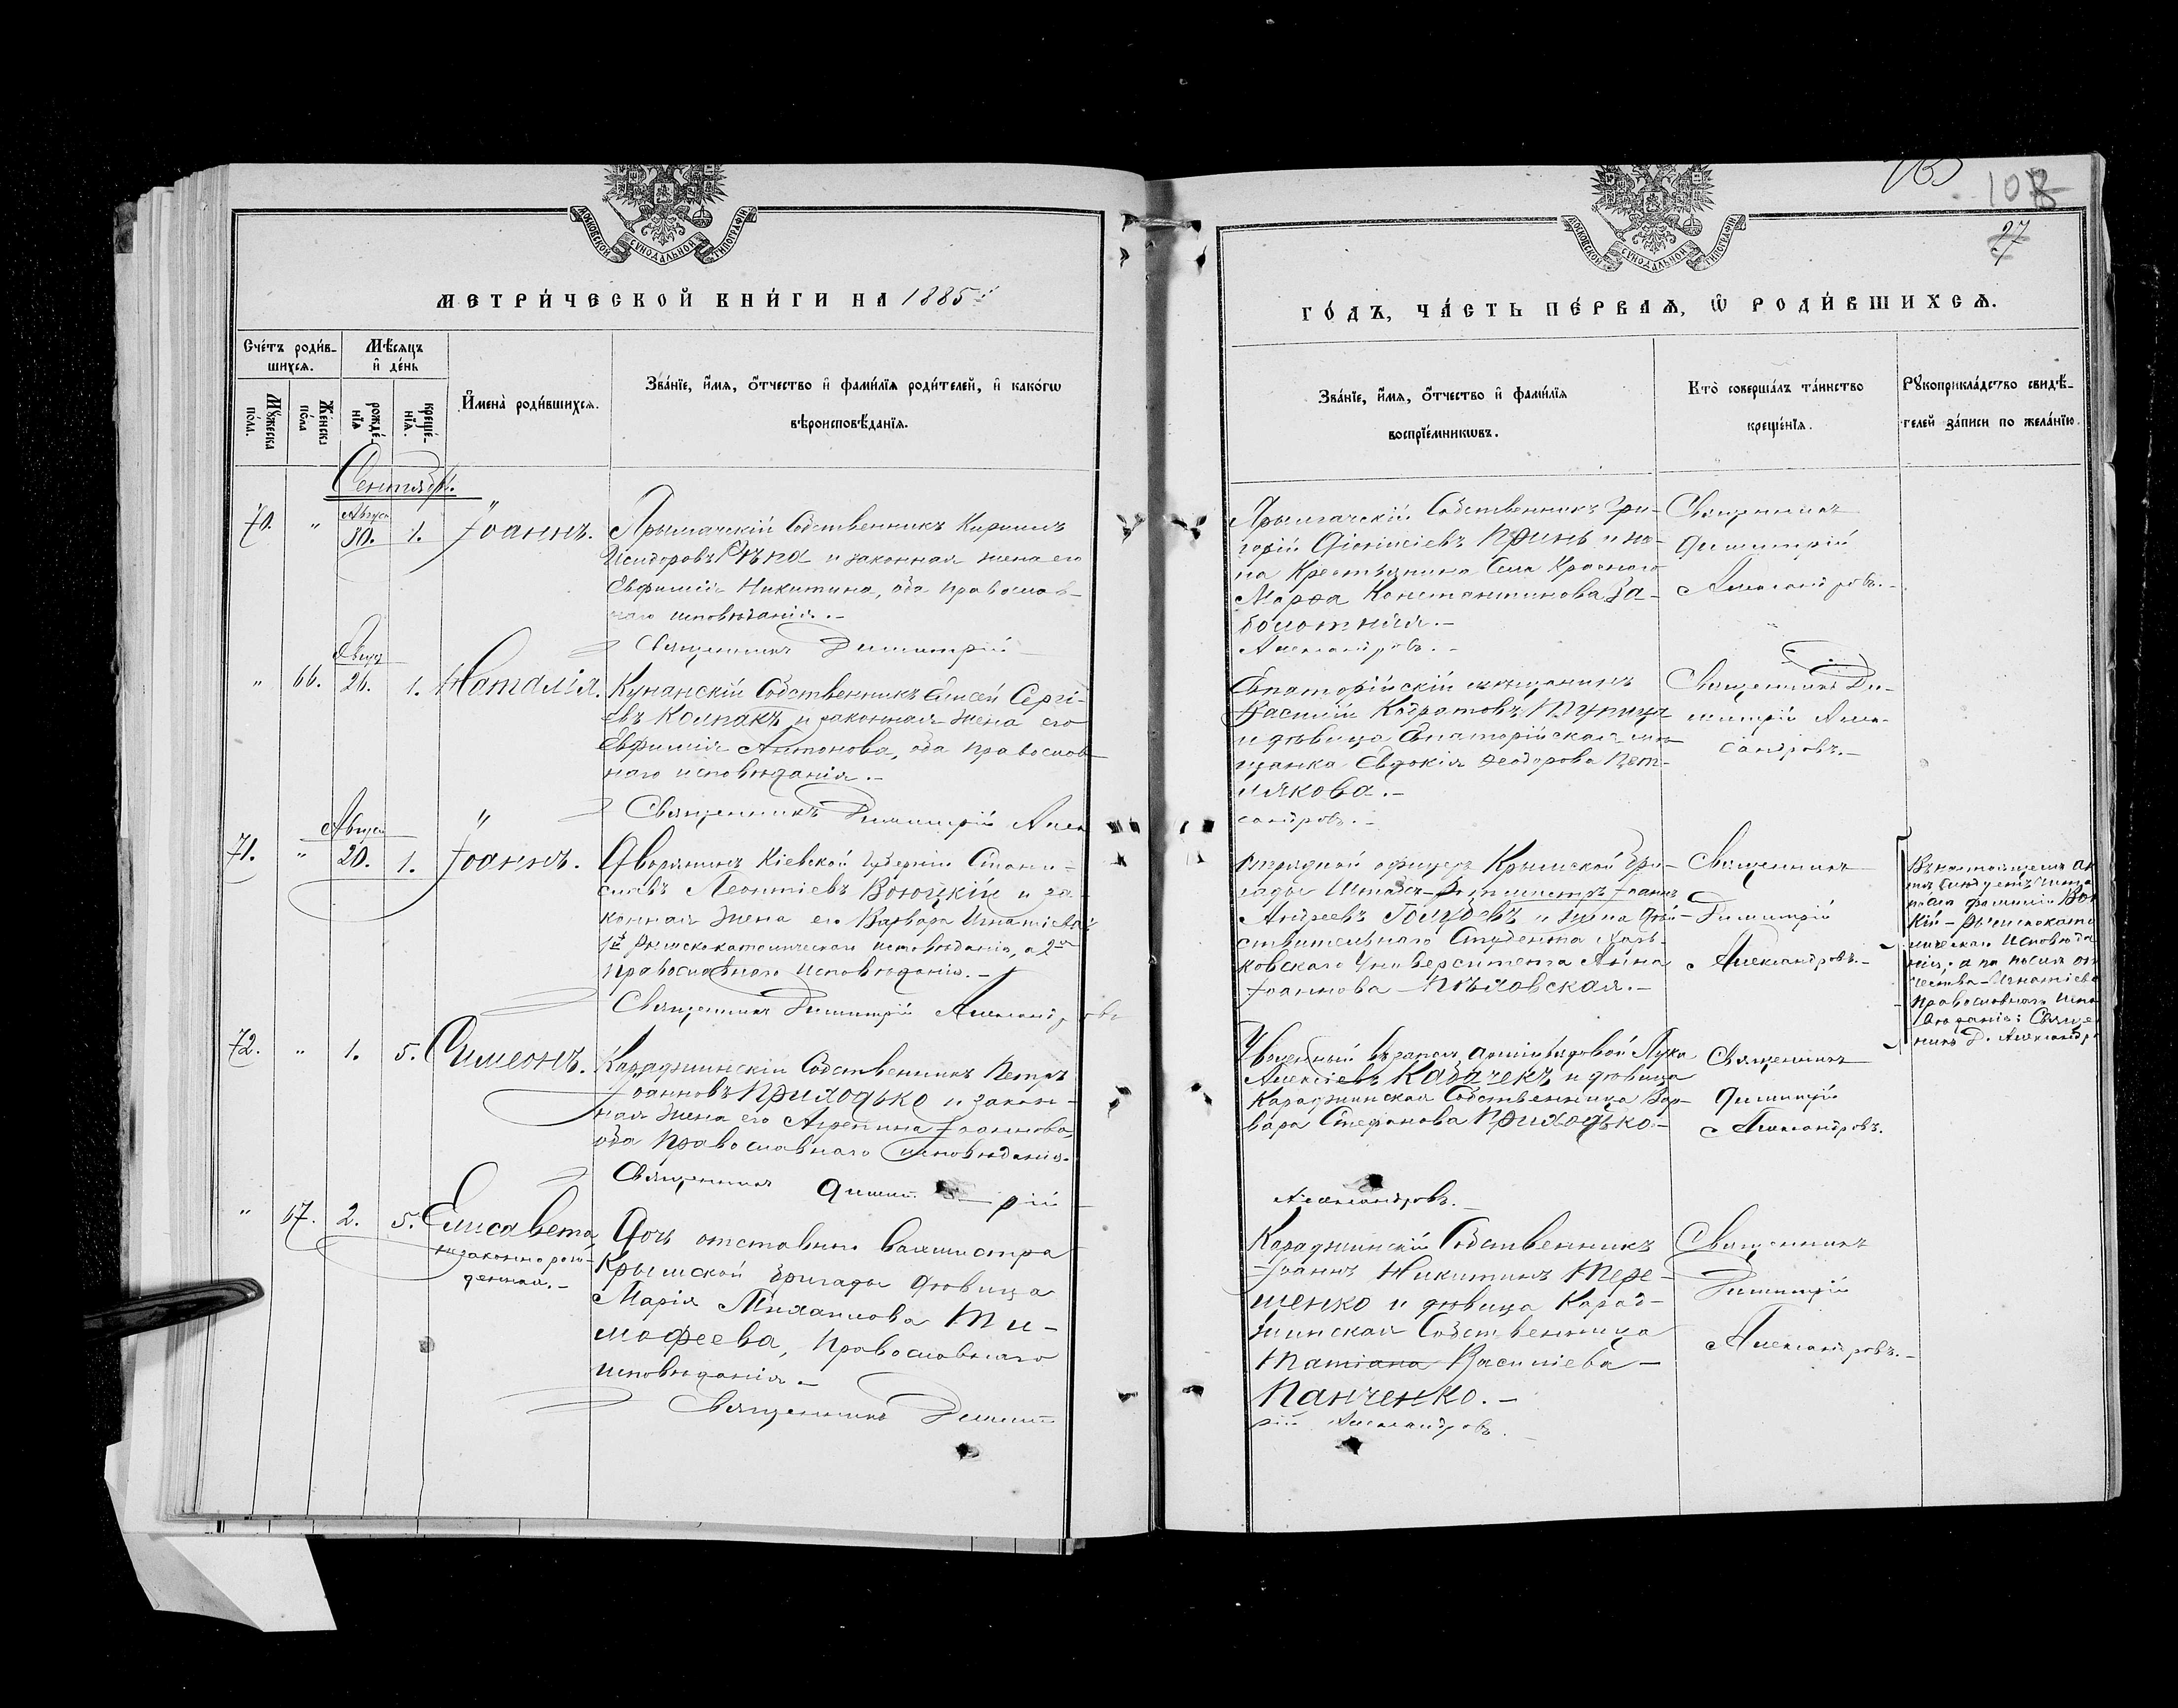 МОСКОВСКОЙ СѴНОДАЛЬНОЙ ТИПОГРАФІИ
МЕТРИ́ЧЕСКОЙ КНИ́ГИ НА 1885й
Сче́тъ роди́в-
шихсѧ.
Мѣ́сѧцъ
и҆ де́нь
Мꙋ́жеска
по́ла.
Же́нска
по́ла
рожде́-
нїѧ
креще́-
нїѧ.
И҆мена̀ роди́вшихсѧ.
Зва́нїе, и҆́мѧ, ѻ҆́тчество и҆ фами́лїѧ роди́телей, и҆ како́гѡ
вѣроисповѣ́данїѧ.
Сентябрь.
70. " Август 30. 1. Іоаннъ.
Ярылгачскій Собственникъ Кириллъ
Исидоровъ Рѣпа и законная жена его
Евфимія Никитина, оба православ-
наго исповѣданія.-
Священникъ Димитрій
" 66. Август 26. 1. Наталія.
Кунанскій Собственникъ Елисей Сергі-
евъ Колпакъ и законная жена его
Евфимія Антонова, оба православ-
наго исповѣданія.-
Священникъ Димитрій Алек
71. " Август 20. 1. Іоаннъ.
Дворянинъ Кіевской Губерніи Стани-
славъ Леонтіевъ и за-
конная жена его Варвара Игнатіева
1й Римскокатолическаго исповѣданія, а 2я
Православнаго исповѣданія.-
Священникъ Димитрій Александровъ
72. " 1. 5. Симеонъ.
Караджинскій Собственникъ Петръ
Іоанновъ Приходько и закон-
ная жена его Агрепина Іоаннова,
оба Православнаго исповѣданія.
Священникъ Димит рій
" 67. 2. 5. Елисавета,
незаконнорож-
денная.-
Дочь отставнаго Вахмистра
Крымской бригады дѣвица
Марія Михаилова Ти-
мофеева, Православнаго
исповѣданія.-
Священникъ Димит
103
108
27
МОСКОВСКОЙ СѴНОДАЛЬНОЙ ТИПОГРАФІИ
ГО́ДЪ, ЧА́СТЬ ПЕ́РВАѦ, Ѽ РОДИ́ВШИХСѦ.
Зва́нїе, и҆́мѧ, ѻ҆́тчество и҆ фами́лїѧ
воспрїе́мникѡвъ.
Кто̀ соверша́лъ та́инство
креще́нїѧ.
Рꙋкоприкла́дство свидѣ́-
телей за́писи по жела́нїю.
Ярылгачскій Собственникъ Гри-
горій Діонисіевъ и же-
на Крестьянина Села Краснаго
Марѳа Константинова За-
болотняя.-
Александровъ.-
Священникъ
Димитрій
Александровъ.-
Евпаторійскій мѣщанинъ
Василій Кодратовъ Тупица
и дѣвица Евпаторійская мѣ-
щанка Евдокія Ѳеодорова Пет-
лякова.-
сандровъ.-
Священникъ Ди-
митрій Алек-
сандровъ.-
Отрядной офицеръ Крымской бри-
гады Штабсъ-Ротмистръ Іоаннъ
Андреевъ и жена Дѣй-
ствительнаго Студента Харь-
ковскаго Университета Анна
Іоаннова
Священникъ
Димитрій
Александровъ.-
Въ настоящемъ ак
тѣ слѣдуетъ
послѣ фамиліи
кій - Римскокато
лическаго исповѣда
нія, а послѣ от
чества - Игнатіева
Православнаго испо
вѣданія: Свяще
никъ Д. Александр
Уволенный въ запасъ рядовой Лука
Алексіевъ Казачекъ и дѣвица
Караджинская Собственница Вар-
вара Стефанова Приходько.-
Александровъ.-
Священникъ
Димитрій
Александровъ.
Караджинскій Собственникъ
Іоаннъ Никитинъ Тере-
щенко и дѣвица Карад-
жинская Собственница
Татіана Василіева
Панченко.-
рій Александровъ.
Священникъ
Димитрій
Александровъ.-